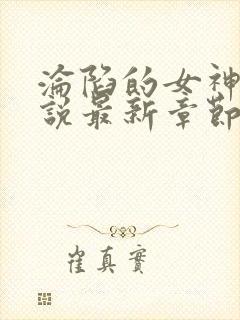 淪陷的女神
說最新章節
崔真實